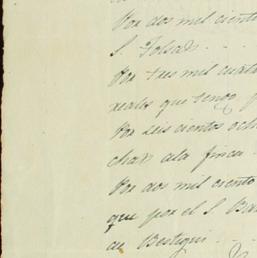 Por dos mil ciento
S. Tolsa
Por tres mil cuatr
reales que tengo p
Por seis cientos och
chas a la finca
Por dos mil ciento
que por el S. Ba
de Bestigui